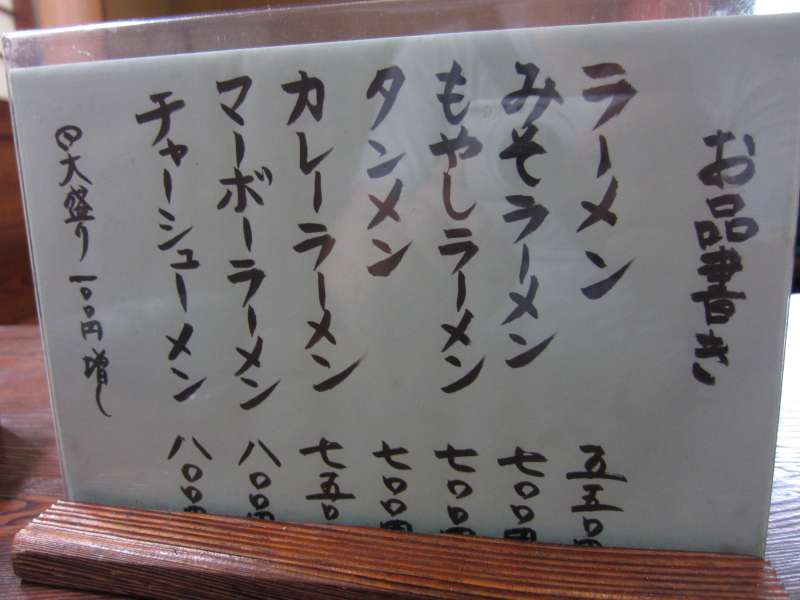 お品書き
ラーメン 五五〇円
みそラーメン 七〇〇円
もやしラーメン 七〇〇円
タンメン 七〇〇円
カレーラーメン 七五〇
マーボーラーメン 八〇〇円
チャーシューメン 八〇〇円
大盛り一〇〇円増し